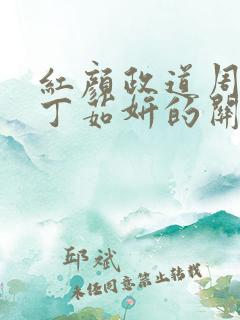 红颜政道周
丁茹妍的关
邱斌
未经同意禁止转载